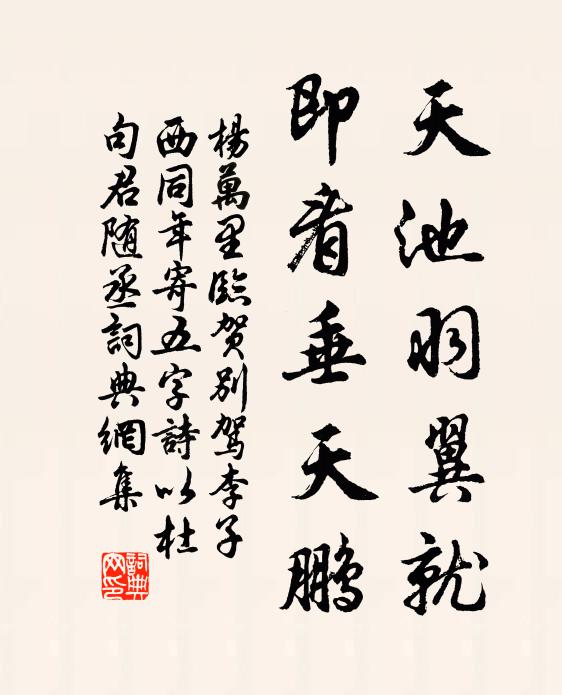 天池羽翼就
即看垂天鹏
楊萬里臨贺別駕李子
西同年寄五字詩以杜
句君随丞詞典網集
詞典
网印